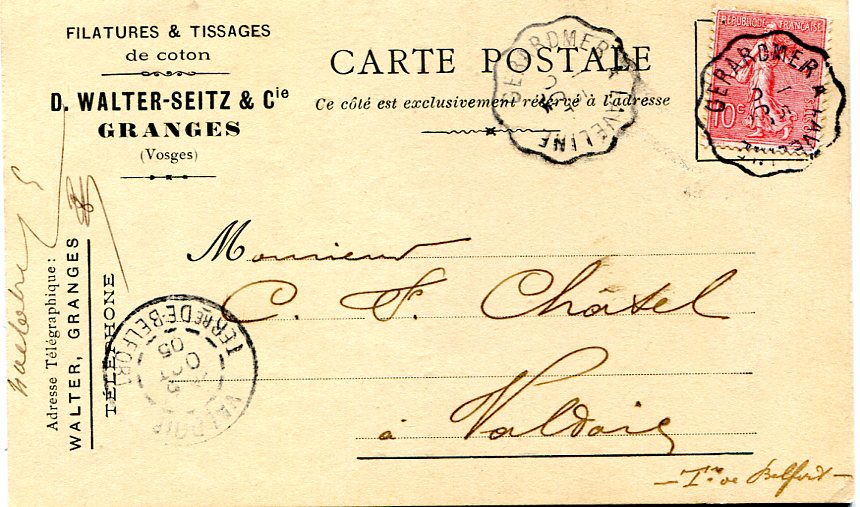 FILATURES & TISSAGES
de coton
D. WALTER-SEITZ & Cie
GRANGES
(Vosges)
CARTE POSTALE
Ce côté est exclusivement réservé à l'adresse
RÉPUBLIQUE FRANÇAISE
10c
GERARDMER A LAVELINE
GERARDMER A LAVELINE
Adresse Télégraphique:
WALTER, GRANGES
TÉLÉPHONE
Monsieur
C. F. Châtel
à Valdoie
Tre de Belfort
VALDOIE
TERRE DE-BELFORT
OCT
05